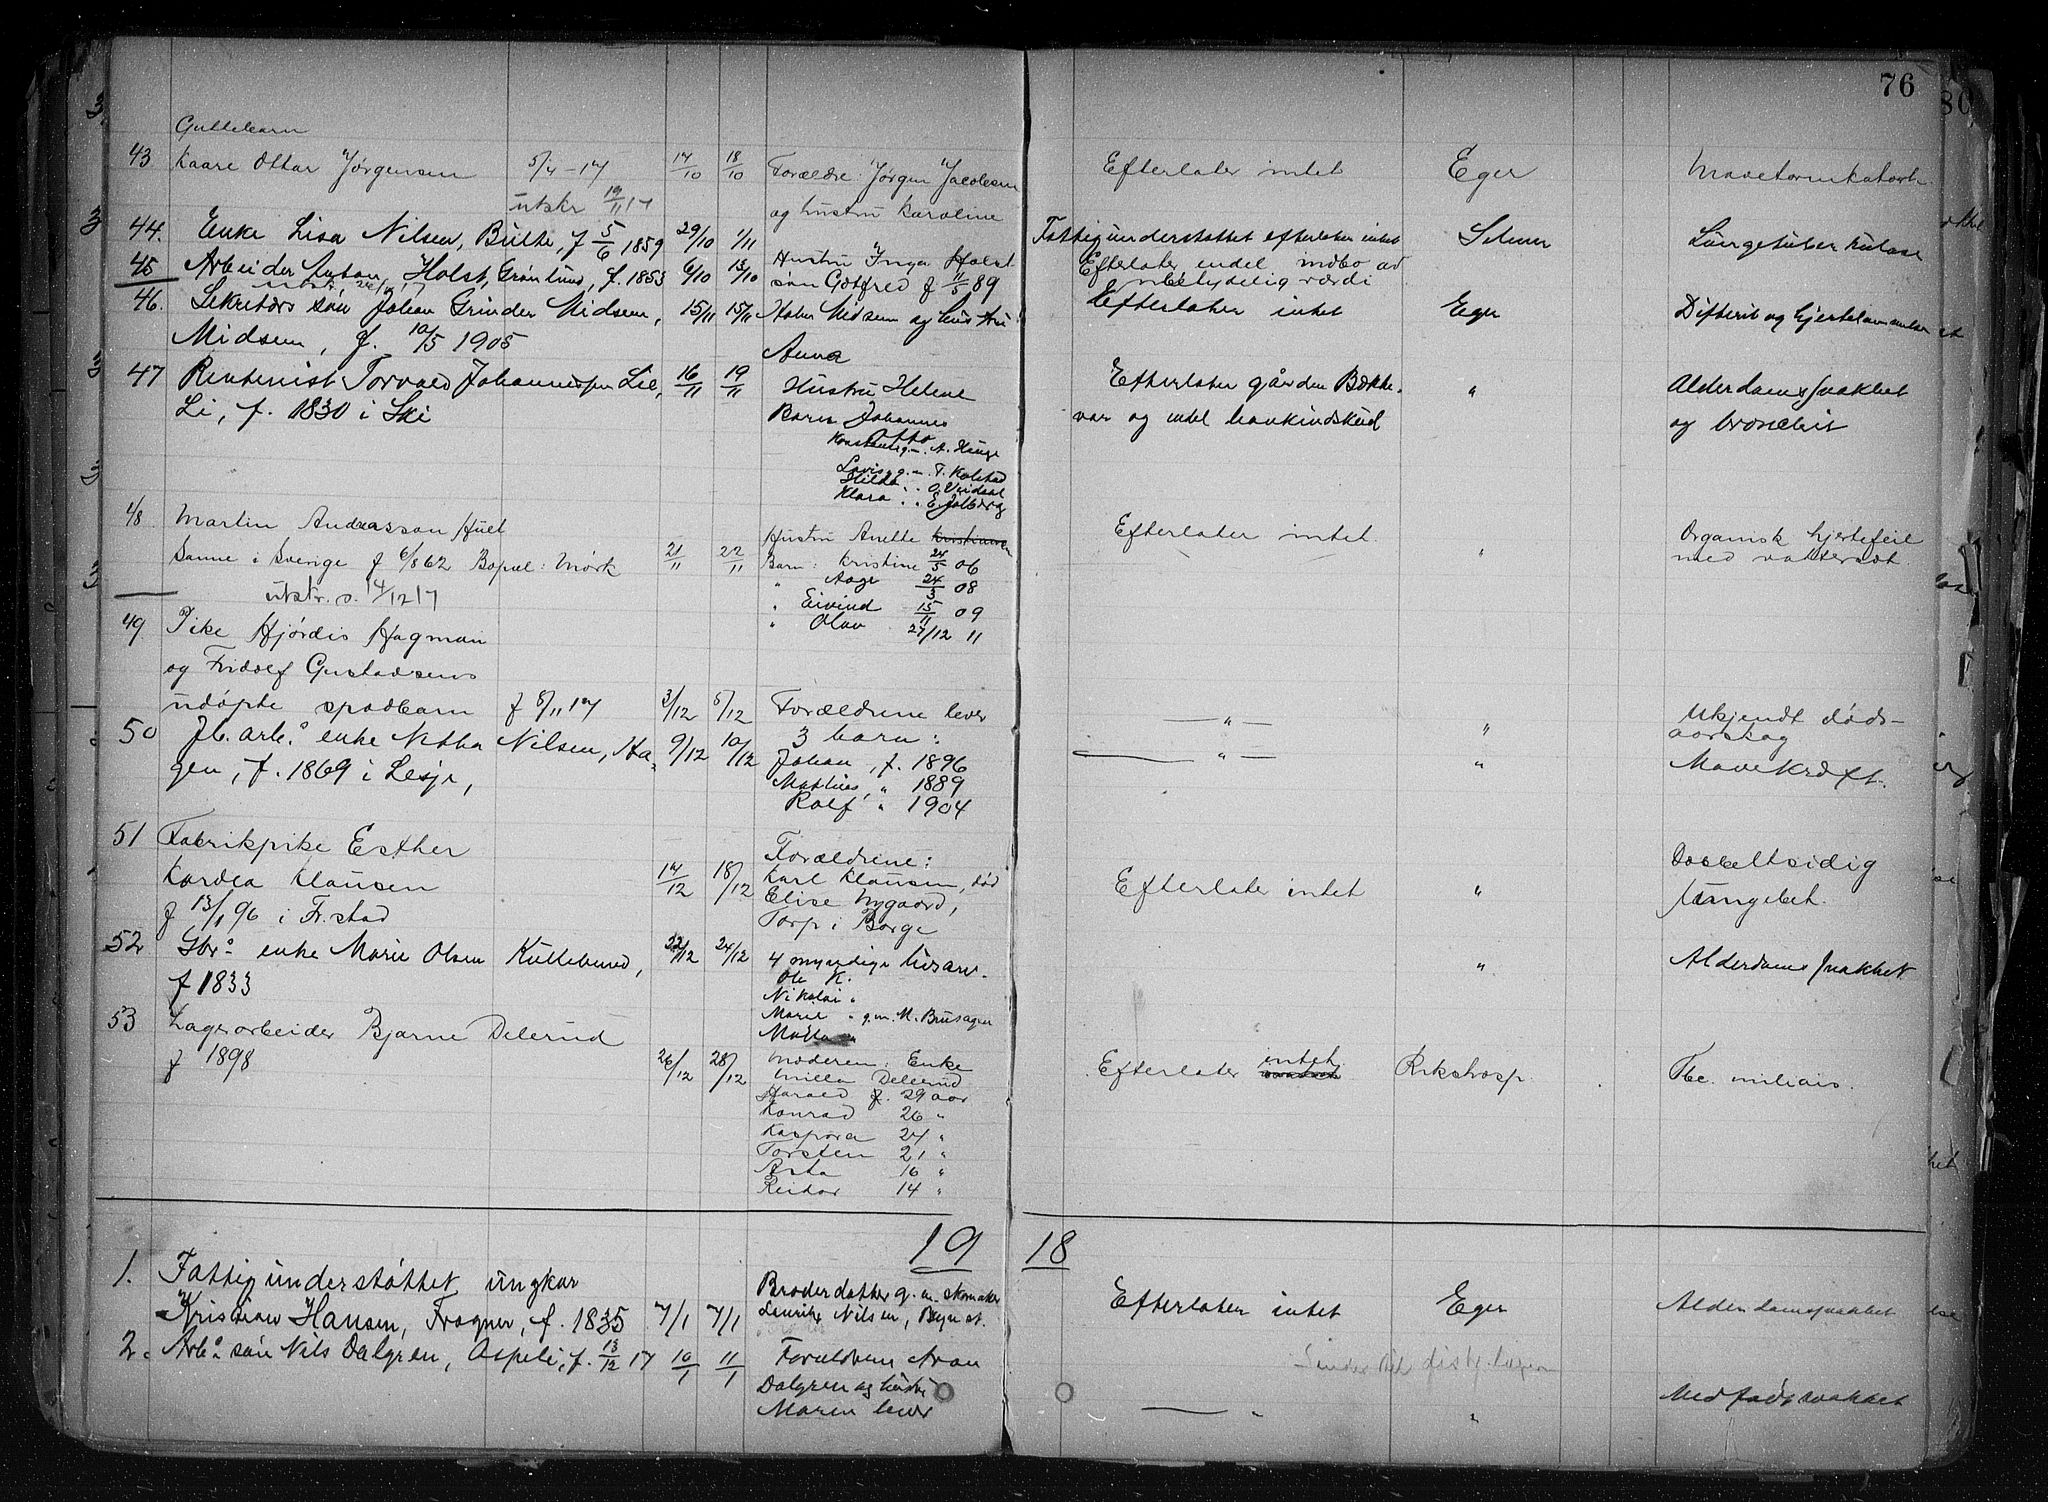 76
Guttebarn
43 Kaare Ottar Jørgensen 5/4-17 14/10 18/10 Forældre: Jørgen Jacobsen Efterlater intet Eger Mavetarmkatarh
utskr 19/11 17 og hustru Karoline
44. Enke Lisa Nilsen, Bulte, f 5/6 1859 29/10 1/11 Fattigunderstøttet efterlater intet Selmer Lungetuberkulose
45 Arbeider Anton Holst, Grønlund, f. 1853 6/10 13/10 Hustru Inga Holst Efterlater endel indbo av
søn Gotfred f 11/5 89 ubetydelig værdi
46. Sekretærs søn Johan Grinder Midsem, 15/11 15/11 Midsem og hustru Efterlater intet Eger Difterit og hjertelammelse
Midsem, f. 10/5 1905 Anna
47 Rentenist Torvald Johannessen Lie, 16/11 19/11 Hustru Helene Efterlater gården Bække- " Alderdomssvakhet
Li, f. 1830 i Ski Barn Johannes var og og bronchit
Otto
A. Hauge
Lovise g.m. T. Kolstad
Hilda " "
Klara " "
48 Martin Andreasson Hult Hustru Anette Efterlater intet " Organisk hjertefeil
Sanne i Sverige f 6/8 62 Bopæl: Mørk 21/11 22/11 Barn: Kristine 24/5 06 med vattersot.
" Aage 24/3 08
utskr. s. 14/12 17 " Eivind 15/11 09
" Olav 27/12 11
49 Pike Hjørdis Hagman
og Fridolf Gustavsens
udøpte spædbarn f 5/11 17 3/12 5/12 Forældrene lever — " — " Ukjendt døds-
aarsak
50 Jb. arb.s enke Netha Nilsen, Ha- 9/12 10/12 3 barn: — " — " Mavekræft.
gen, f. 1869 i Lesje, Johan, f. 1896
Mathias, " 1889
Rolf " 1904
51 Fabrikpike Esther Forældrene: Dobbeltsidig
Kordea Klausen 14/12 18/12 Karl Klausen, død Efterlater intet " lungebet.
f 13/1 96 i Fr.stad Elise Nygaard,
Torp i Borge
52 Gbr.s enke Marie Olsen Kullebund, 22/12 24/12 4 myndige livsarv. " Alderdomssvakhet
f 1833 Ole K.
Nikolai "
Marie " g.m. M. Brusagen
53 Lagerarbeider Bjarne Delerud
f 1898 26/12 28/12 Moderen: Enke Efterlater intet Rikshosp. Tbc. miliaris.
Milla Delerud
Harald f. 29 aar
Konrad 26 "
Kaspara 24 "
Torsten 21 "
Asta 16 "
Reidar 14 "
19 18
1. Fattigunderstøttet ungkar Broderdatter g.m. skomaker
Kristian Hansen, Frogner, f. 1835 7/1 7/1 Laurits Nilsen, Efterlater intet Eger Alderdomssvakhet
2. Arb.s søn Nils Dalgren, Aspeli, f. 13/12 17 10/1 11/1 Forældrene Aron
Dalgren og hustru
Maren lever — " " Medfødt svakhet